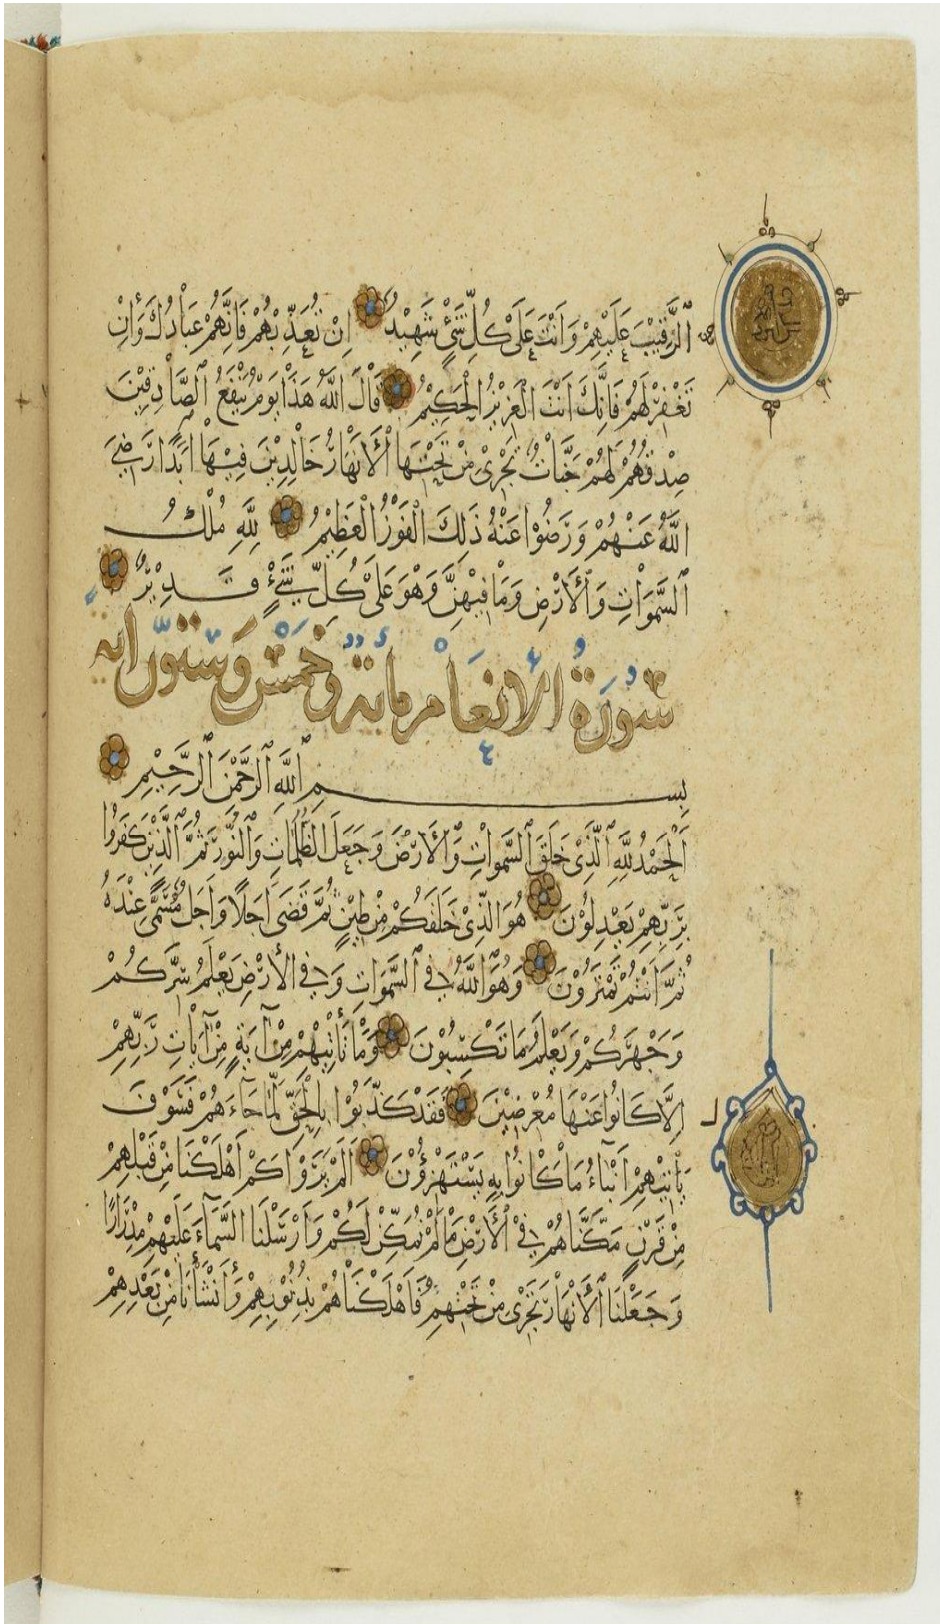 ٱلرَّقِيْبَ عَلَيْهِمْ وَاَنْتَ عَلَى كُلِّ شَىْءٍ شَهِيْدٌ اِنْ تُعَذِّبْهُمْ فَاِنَّهُمْ عِبَادُكَ وَاِنْ
تَغْفِرْ لَهُمْ فَاِنَّكَ اَنْتَ الْعَزِيْزُ الْحَكِيْمُ قَالَ اللّٰهُ هَذَا يَوْمُ يَنْفَعُ الصَّادِقِيْنَ
صِدْقُهُمْ لَهُمْ جَنَّاتٌ تَجْرِى مِنْ تَحْتِهَا الْاَنْهَارُ خَالِدِيْنَ فِيْهَا اَبَدًا رَضِىَ
اللّٰهُ عَنْهُمْ وَرَضُوْا عَنْهُ ذَلِكَ الْفَوْزُ الْعَظِيْمُ لِلّٰهِ مُلْكُ
السَّمٰوَاتِ وَالْاَرْضِ وَمَا فِيْهِنَّ وَهُوَ عَلَى كُلِّ شَىْءٍ قَدِيْرٌ
سُوْرَةُ الْاَنْعَامِ مائة وَخَمْسٌ وَسِتُّوْنَ اٰية
بِسْمِ اللّٰهِ الرَّحْمٰنِ الرَّحِيْمِ
اَلْحَمْدُ لِلّٰهِ الَّذِىْ خَلَقَ السَّمٰوَاتِ وَالْاَرْضَ وَجَعَلَ الظُّلُمَاتِ وَالنُّوْرَ ثُمَّ الَّذِيْنَ كَفَرُوْا
بِرَبِّهِمْ يَعْدِلُوْنَ هُوَ الَّذِىْ خَلَقَكُمْ مِنْ طِيْنٍ ثُمَّ قَضَى اَجَلًا وَاَجَلٌ مُسَمًّى عِنْدَهُ
ثُمَّ اَنْتُمْ تَمْتَرُوْنَ وَهُوَ اللّٰهُ فِى السَّمٰوَاتِ وَفِى الْاَرْضِ يَعْلَمُ سِرَّكُمْ
وَجَهْرَكُمْ وَيَعْلَمُ مَا تَكْسِبُوْنَ وَمَا تَأْتِيْهِمْ مِنْ اٰيَةٍ مِنْ اٰيَاتِ رَبِّهِمْ
اِلَّا كَانُوْا عَنْهَا مُعْرِضِيْنَ فَقَدْ كَذَّبُوْا بِالْحَقِّ لَمَّا جَآءَهُمْ فَسَوْفَ
يَأْتِيْهِمْ اَنْبَاءُ مَا كَانُوْا بِهِ يَسْتَهْزِؤُنَ اَلَمْ يَرَوْا كَمْ اَهْلَكْنَا مِنْ قَبْلِهِمْ
مِنْ قَرْنٍ مَكَّنَّاهُمْ فِى الْاَرْضِ مَا لَمْ نُمَكِّنْ لَكُمْ وَاَرْسَلْنَا السَّمَآءَ عَلَيْهِمْ مِدْرَارًا
وَجَعَلْنَا الْاَنْهَارَ تَجْرِى مِنْ تَحْتِهِمْ فَاَهْلَكْنَاهُمْ بِذُنُوْبِهِمْ وَاَنْشَأْنَا مِنْ بَعْدِهِمْ